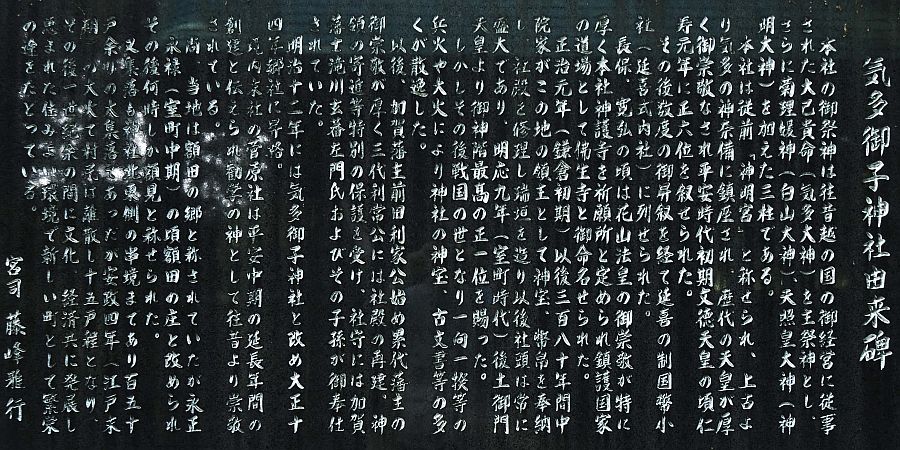 気多御子神社由来碑
本社の御祭神は往昔越の国の御経営に従事
された大己貴命（気多大神）を主祭神とし、
さらに菊理媛神（白山大神）天照皇大神（神
明大神）を加えた三柱である。
本社は従前「神明宮」と称せられ、上古よ
り気多の神奈備に鎮座され、歴代の天皇が厚
く御崇敬なされ平安時代初期文徳天皇の頃仁
寿元年に正六位を叙せられた。
その後数度の御昇叙を経て延喜の制国幣小
社（延喜式内社）に列せられた。
長保、寛弘の頃は花山法皇の御崇敬が特に
厚く本社神護寺を祈願所と定められ鎮護国家
の道場として儒生寺と御命名せられた。
正治元年（鎌倉初期）以後三百八十年間中
院家がこの地の領主として神宝、幣帛を奉納
し、社殿を修理し瑞垣を造り以後社頭は常に
盛大であり、明応九年（室町時代）後土御門
天皇より御神階最高の正一位を賜った。
しかしその後戦国の世となり一向一揆等の
兵火や大火により神社の神宝、古文書等の多
くが散逸した。
以後、加賀藩主前田利家公始め累代藩主の
御崇敬が厚く三代利常公には社殿の再建、神
領の寄進等特別の保護を受け、社守には加賀
藩士滝川玄蕃左門氏およびその子孫が御奉仕
されていた。
明治十二年には気多御子神社と改め大正十
四年郷社に昇格。
境内末社の菅原社は平安中期の延長年間の
創建と伝えられ勧学の神として往昔より崇敬
されている。
尚、当地は額田の郷と称されていたが永正
永禄（室町中期）の頃額田の庄と改められ
その後何時しか額見と称せられた。
又集落も神社北東側の串境まであり百五十
戸余りの大集落であったが安政四年（江戸末
期）の大火で村民は離散し十五戸程となり、
その後一世紀余の間に文化、経済共に発展し
恵まれた住みよい環境で新しい町として繁栄
の途をたどっている。
宮司 藤峰雅行